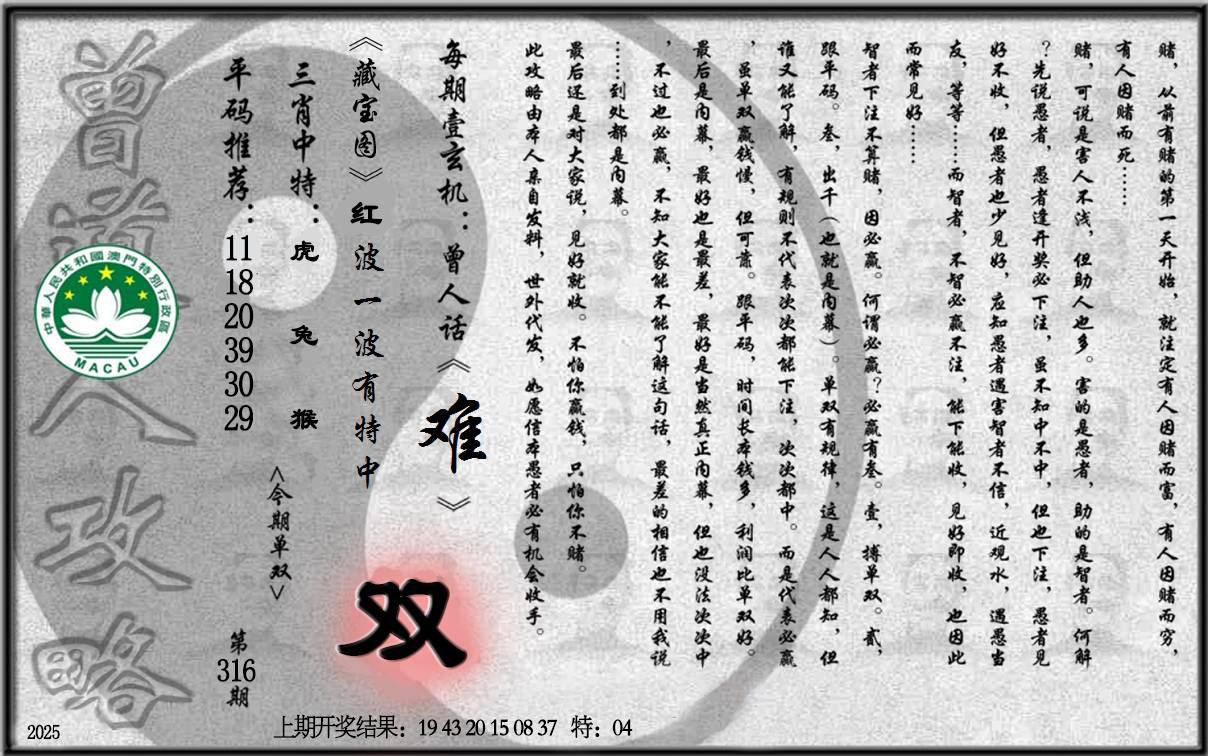 赌，从前有赌的第一天开始，就注定有人因赌而富，有人因赌而穷，
有人因赌而死……
赌，可说是害人不浅，但助人也多。害的是愚者，助的是智者。何解
？先说愚者，愚者逢开奖必下注，虽不知中不中，但也下注，愚者见
好不收，但愚者也少见好，应知愚者遇害智者不信，近观水，遇愚当
友，等等……而智者，不智必赢不注，能下能收，见好即收，也因此
而常见好……
智者下注不算赌，因必赢。何谓必赢？必赢有叁。壹，搏单双。贰，
跟平码。叁，出千（也就是内幕）。单双有规律，这是人人都知，但
谁又能了解，有规则不代表次次都能下注，次次都中。而是代表必赢
，虽单双赢钱慢，但可靠。跟平码，时间长本钱多，利润比单双好。
最后是内幕，最好也是最差，最好是当然真正内幕，但也没法次次中
，不过也必赢，不知大家能不能了解这句话，最差的相信也不用我说
……到处都是内幕。
最后还是对大家说，见好就收。不怕你赢钱，只怕你不赌。
此攻略由本人亲自发料，世外代发，如愿信本愚者必有机会收手。
每期壹玄机：曾人话《难》
《藏宝图》红波一波有特中
双
三肖中特：虎 兔 猴
<今期单双>
平码推荐：11 18 20 39 30 29
第316期
曾道人攻略
中華人民共和國澳門特別行政區
MACAU
2025
上期开奖结果：19 43 20 15 08 37 特：04